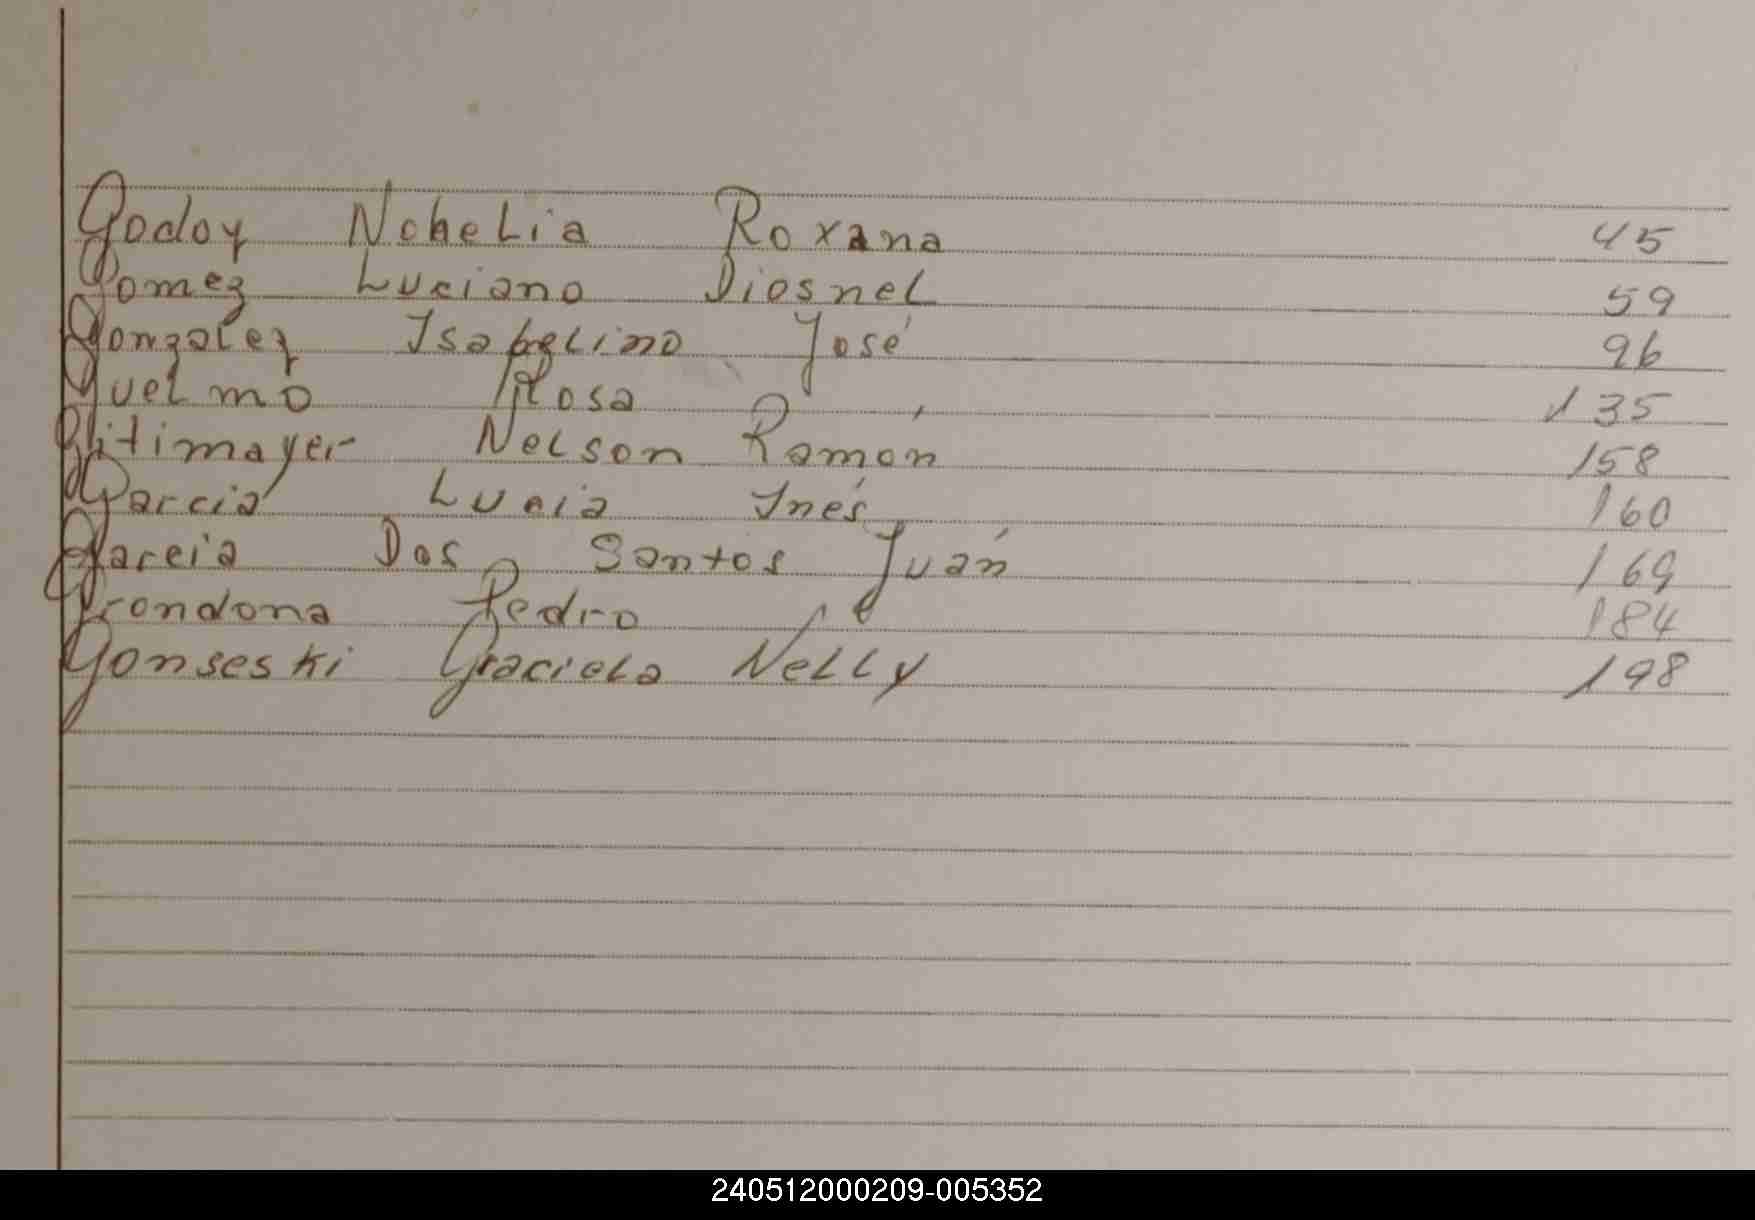 Godoy Nohelia Roxana 45
Gomez Luciano Diosnel 59
Gonzalez Isabelino José 96
Guelmo Rosa 135
Glitimayer Nelson Ramón 158
Garcia Lucia Inés 160
Garcia Dos Santos Juán 169
Grondona Pedro 184
Gonseski Graciela Nelly 198
240512000209-005352